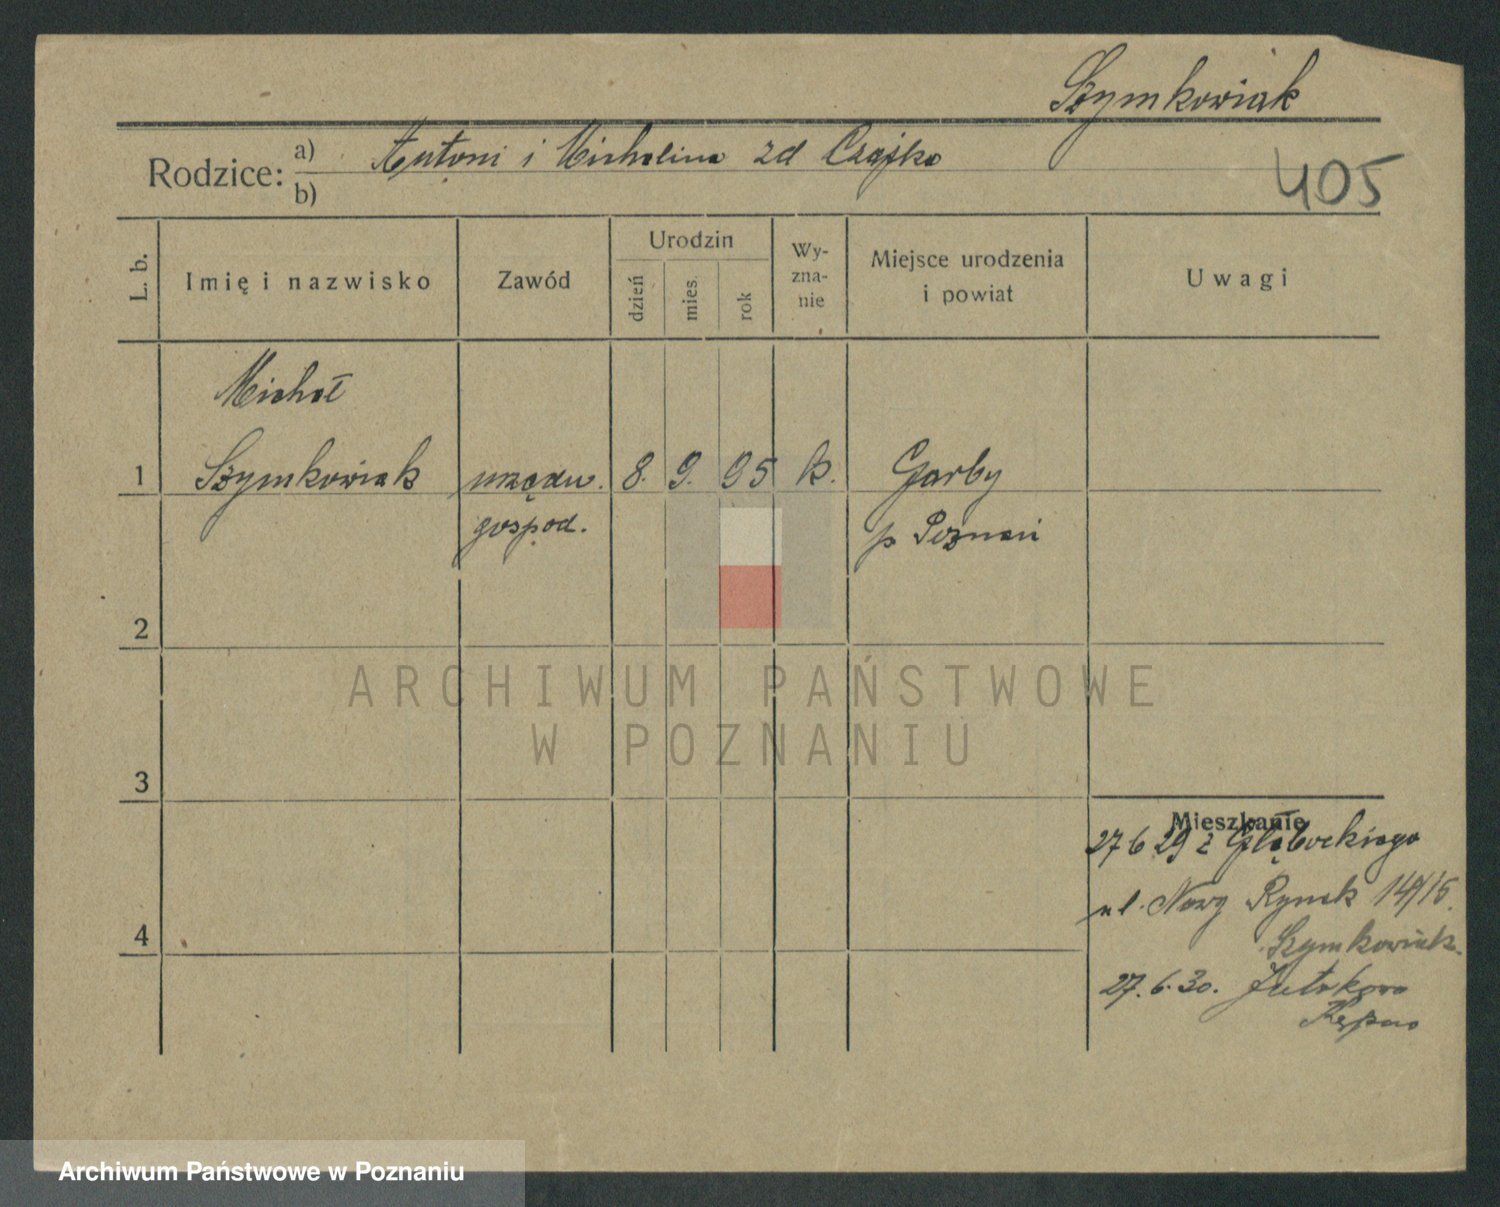 Szymkowiak
Rodzice: a) Antoni i Michalina zd Czajka
b)
405
L. b.
Imię i nazwisko
Zawód
Urodzin
dzień
mies.
rok
Wy-
zna-
nie
Miejsce urodzenia
i powiat
Uwagi
Michał
1 Szymkowiak urzędn. 8. 9. 95 k. Garby
gospod. p Poznań
2
ARCHIWUM PAŃSTWOWE
W POZNANIU
3
Mieszkanie
27 6 29 z Głębockiego
4 ul. Nowy Rynek 14/15.
Szymkowiak
27.6.30.
Kępno
Archiwum Państwowe w Poznaniu